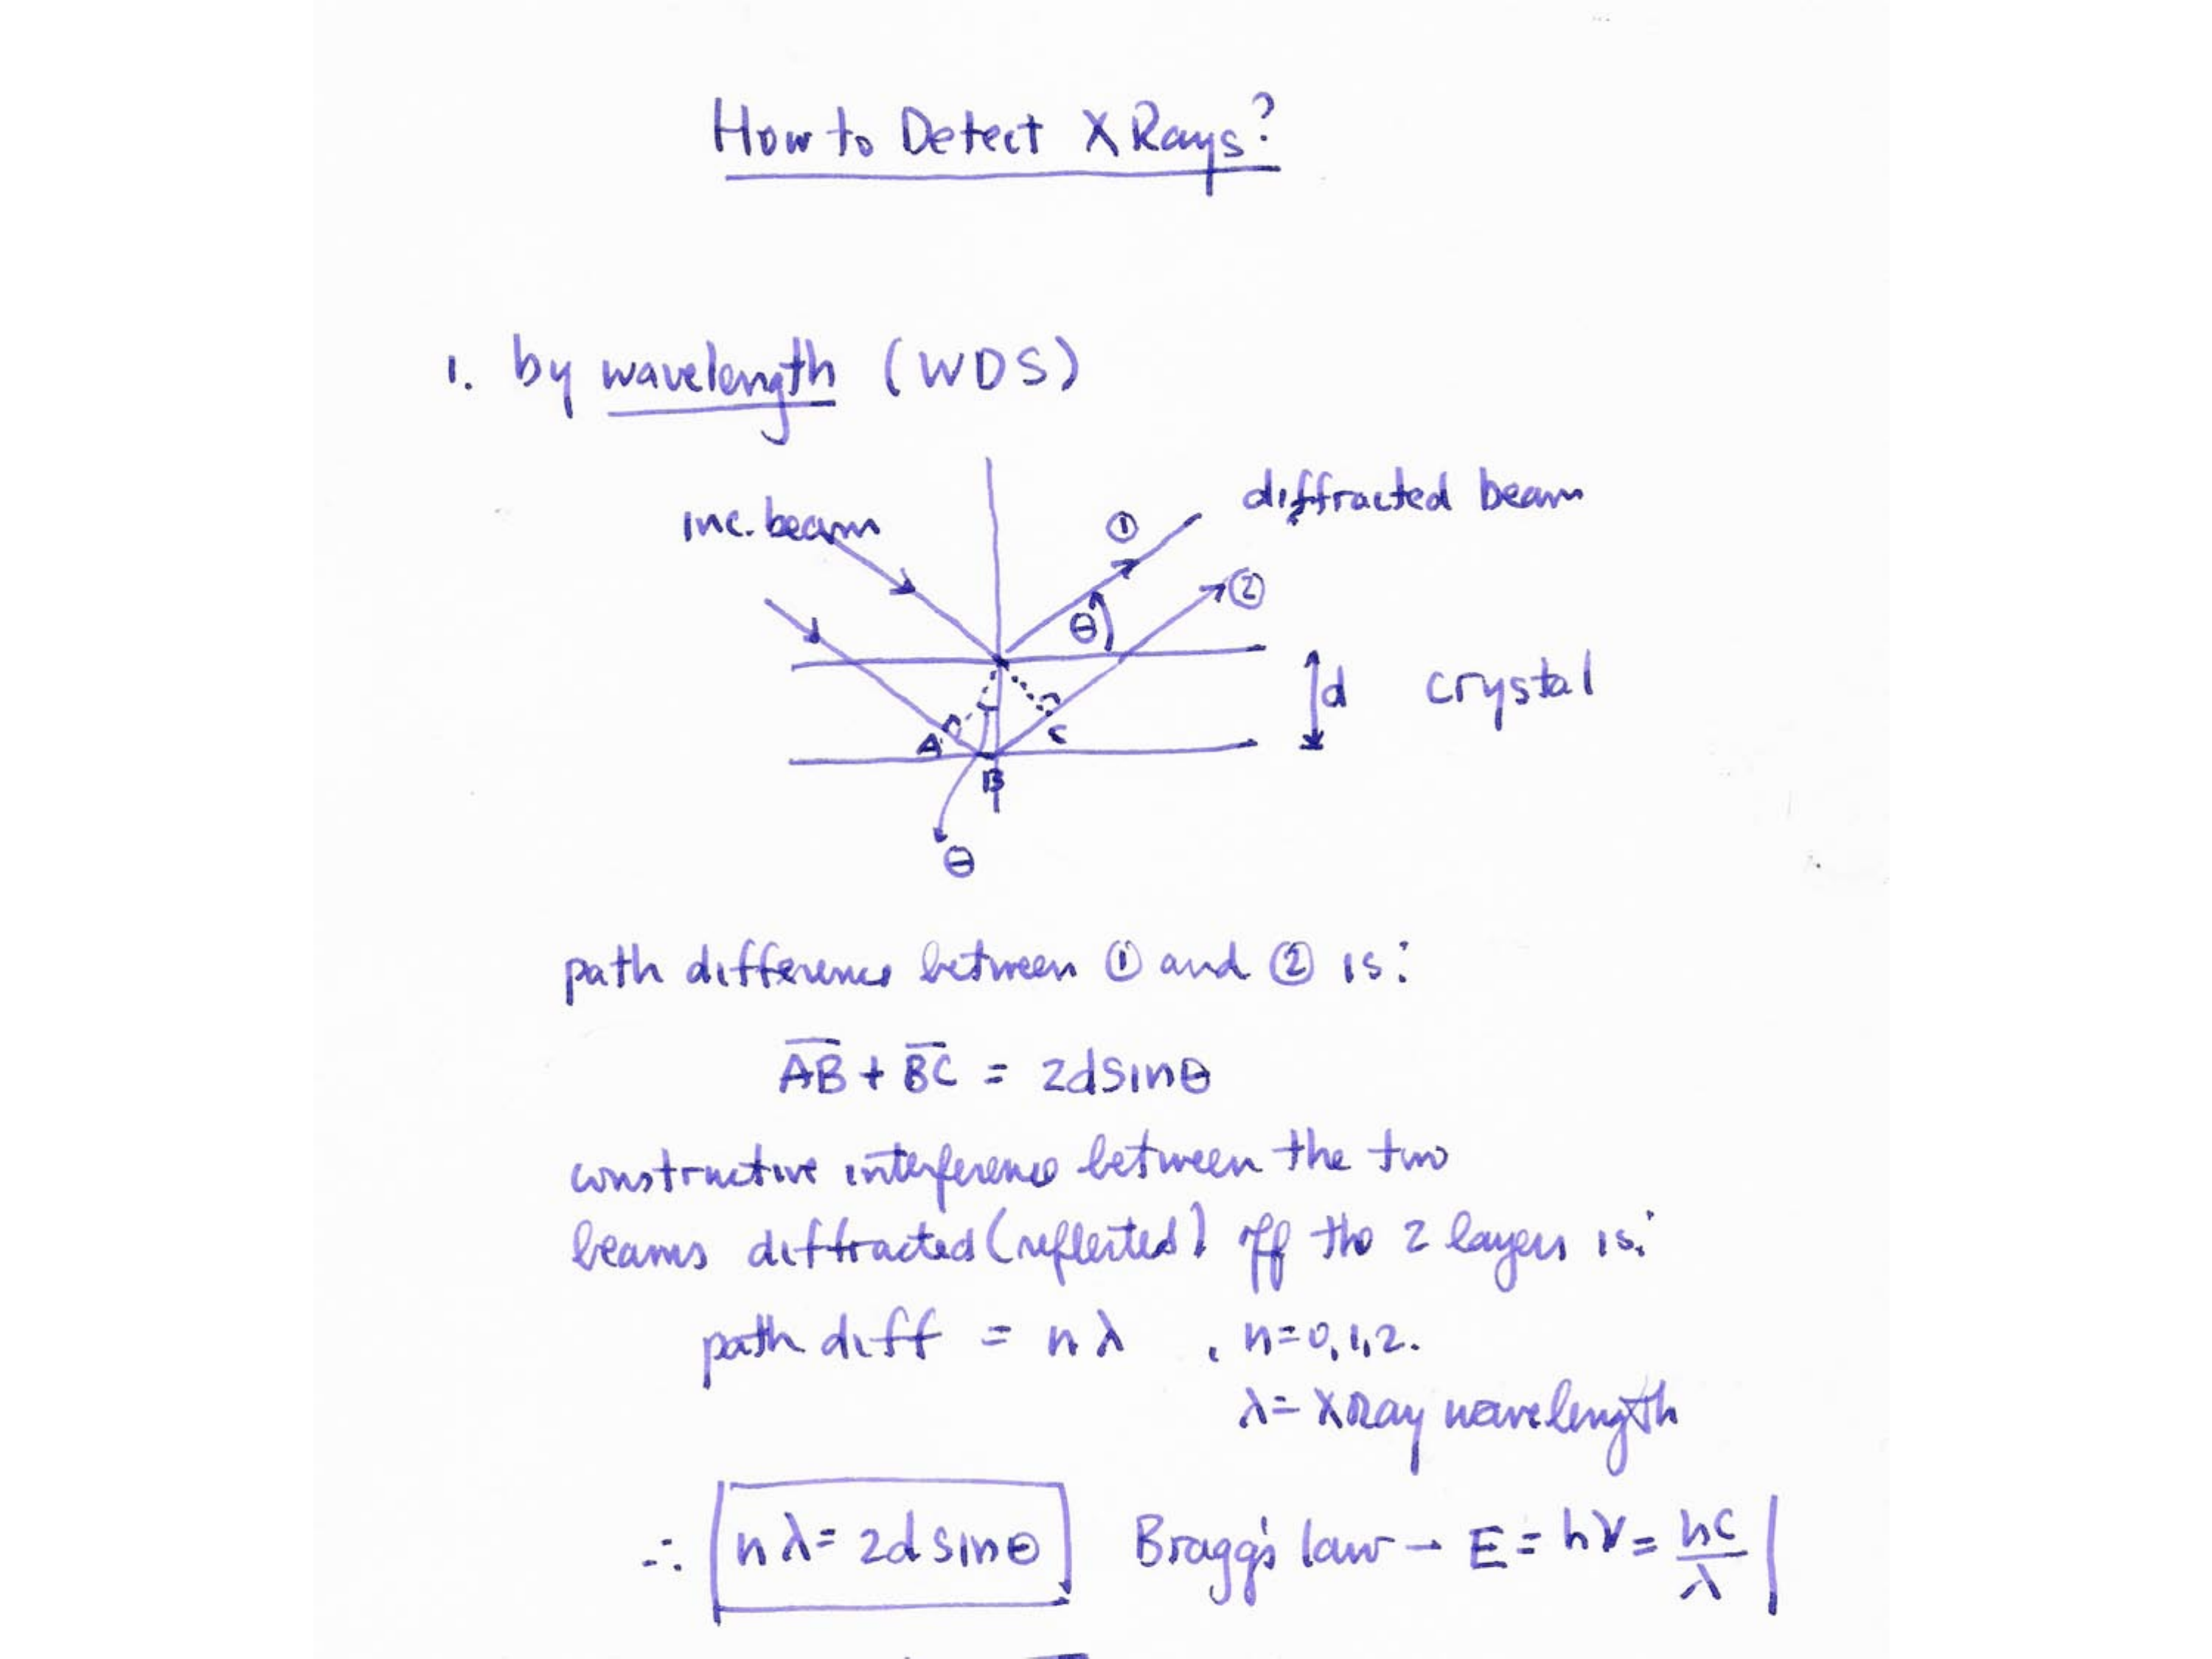 How to Detect X Rays?
1. by wavelength (WDS)
inc. beam
① diffracted beam
②
θ
d crystal
A C
B
θ
path difference between ① and ② is:
A̅B̅ + B̅C̅ = 2dsinθ
constructive interference between the two
beams diffracted (reflected) off the 2 layers is:
path diff = nλ , n=0,1,2.
λ= XRay wavelength
∴ nλ= 2d sinθ Bragg's law → E = hν = hc/λ